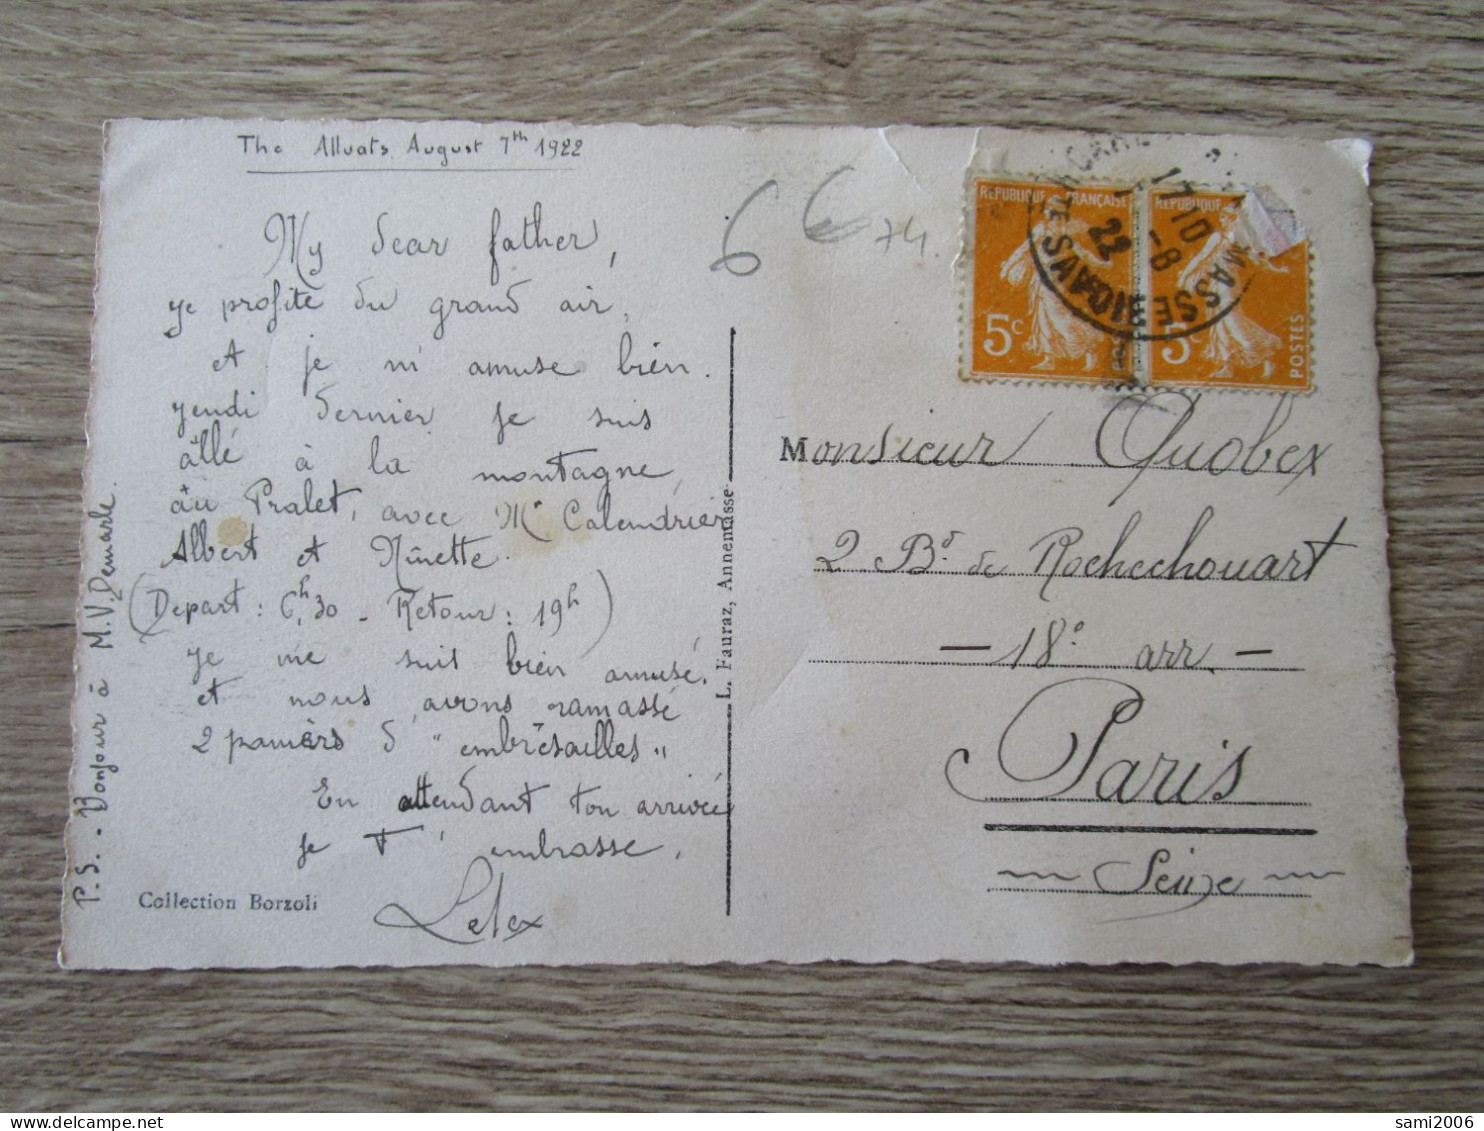 The Alluats, August 7th 1922
My dear father,
je profite du grand air,
et je m'amuse bien.
jeudi dernier je suis
allé à la montagne,
au Pralet, avec Mr Calendrier
Albert et Ninette.
(Depart : 6h,30 - Retour : 19h)
Je me suis bien amusé.
et nous avons ramassé
2 paniers d' "embrésailles"
En attendant ton arrivée
je t'embrasse.
Lelex
P.S. - Bonjour à M.V. Demarle.
Collection Borzoli
L. Fauraz, Annemasse
66 74.
REPUBLIQUE FRANÇAISE
5c
REPUBLIQUE
5c
POSTES
17 10
-8
22
MASSE
HTE SAVOIE
Monsieur Quobex
2 Bd de Rochechouart
- 18e arr -
Paris
Seine
sami2006